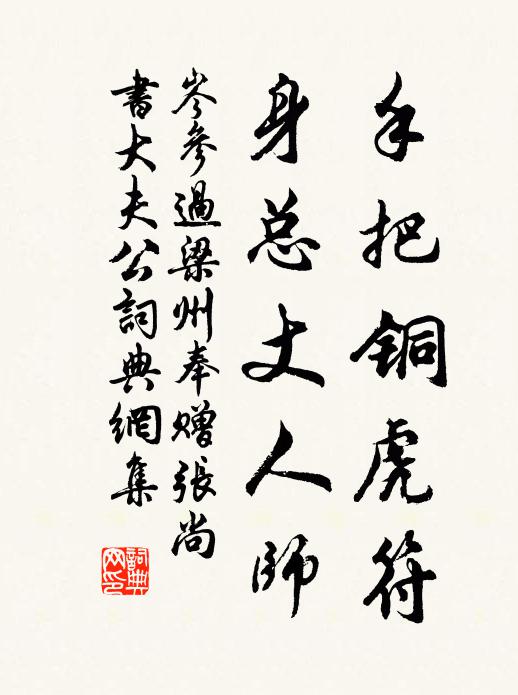 手把铜虎符
身总丈人师
岑參過梁州奉赠張尚
書大夫公詞典網集
詞典网印